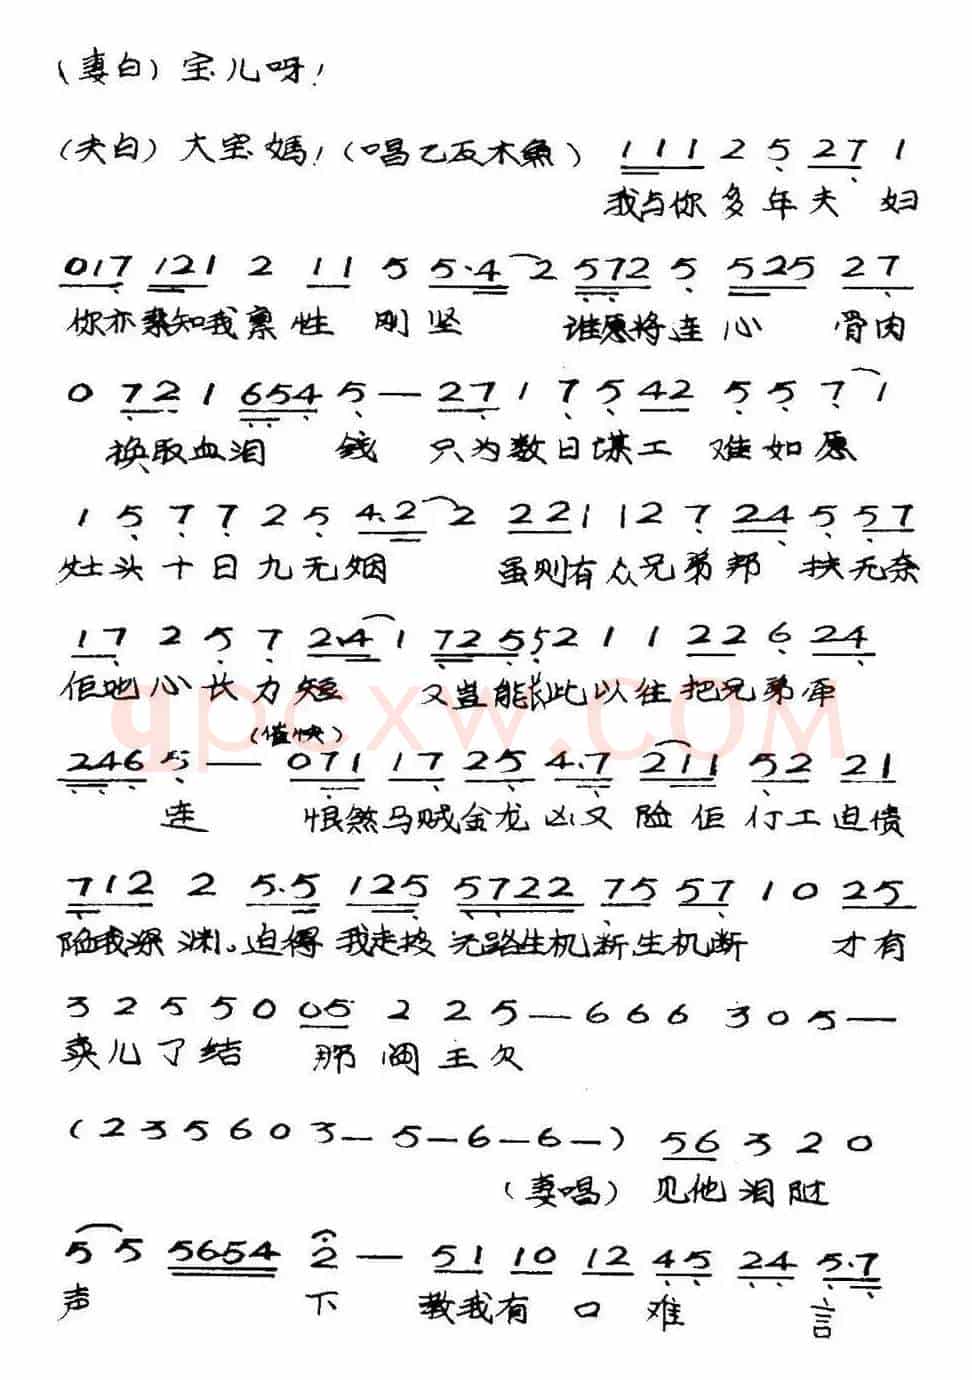 (妻白) 宝儿呀!
(夫白) 大宝妈! (唱乙反木魚) 1 1 1 2 5 2 7 1
我与你多年夫妇
0 1 7 1 2 1 2 1 1 5 5·4 2 5 7 2 5 5 2 5 2 7
你亦素知我禀性刚坚 谁愿将连心骨肉
0 7 2 1 6 5 4 5 — 2 7 1 7 5 4 2 5 5 7 1
换取血泪钱 只为数日谋工难如愿
1 5 7 7 2 5 4·2 2 2 2 1 1 2 7 2 4 5 5 7
灶头十日九无烟 虽则有众兄弟帮扶无奈
1 7 2 5 7 2·4 1 7 2 5 5 2 1 1 2 2 6 2 4
佢哋心长力短 又岂能长此以往把兄弟牵
2 4 6 5 — (催快) 0 7 1 1 7 2 5 4·7 2 1 1 5 2 2 1
连 恨煞马贼金龙凶又险佢行工迫债
7 1 2 2 5·5 1 2 5 5 7 2 2 7 5 5 7 1 0 2 5
陷我深渊。迫得我走投无路生机断,生机断 才有
3 2 5 5 0 0 5 2 2 5 — 6 6 6 3 0 5 —
卖儿了结 那阎王欠
(2 3 5 6 0 3 — 5 — 6 — 6 —) 5 6 3 2 0
(妻唱) 见他泪随
5 5 5 6 5 4 2 — 5 1 1 0 1 2 4 5 2 4 5·7
声下 教我有口难言
qpcxw.com